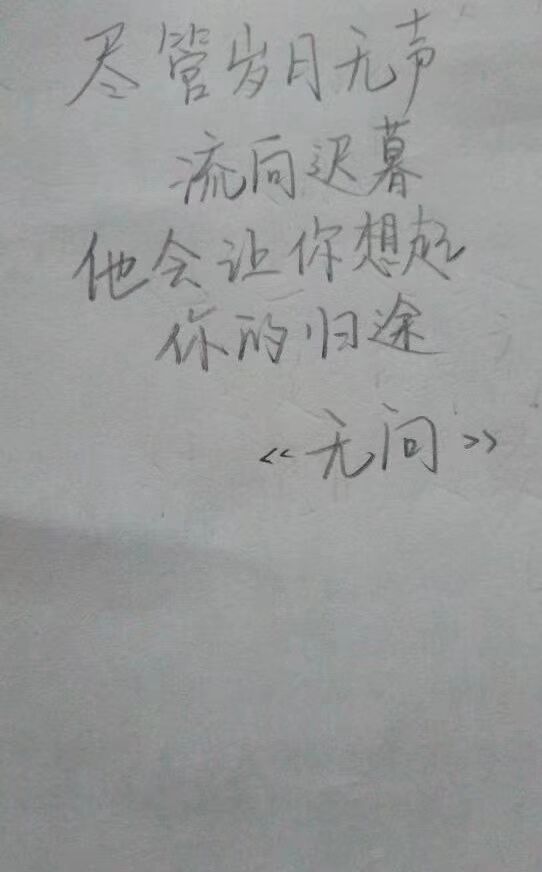 尽管岁月无声
流向迟暮
他会让你想起
你的归途
<<无问>>